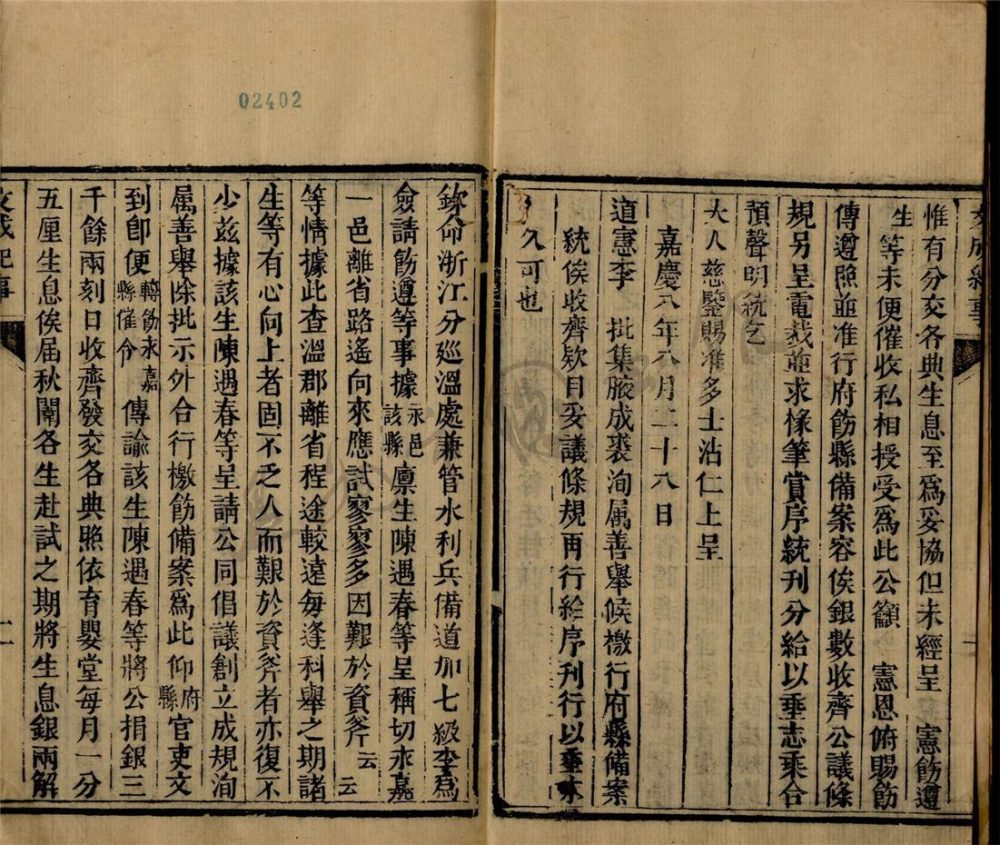 惟有分交各典生息至爲妥協但未經呈 憲飭遵
生等未便催收私相授受爲此公籲 憲恩俯賜飭
傳遵照並准行府飭縣備案容俟銀數收齊公議條
規另呈電裁並求椽筆賞序統刊分給以垂志乘合
預聲明統乞
大人慈鑒賜准多士沾仁上呈
嘉慶八年八月二十八日
道憲李 批集腋成裘洵属善舉候檄行府縣備案
統俟收齊欵目妥議條規再行給序刊行以垂永
久可也
02402
欽命浙江分巡溫處兼管水利兵備道加七級李爲
僉請飭遵等事據永邑該縣廪生陳遇春等呈稱切永嘉
一邑離省路遙向來應試寥寥多因艱於資斧云云
等情據此查溫郡離省程途較遠每逢科舉之期諸
生等有心向上者固不乏人而艱於資斧者亦復不
少兹據該生陳遇春等呈請公同倡議創立成規洵
属善舉除批示外合行檄飭備案爲此仰府縣官吏文
到卽便轉飭永嘉縣催令傳諭該生陳遇春等將公捐銀三
千餘兩刻日收齊發交各典照依育嬰堂每月一分
五厘生息俟届秋闈各生赴試之期將生息銀兩解
文成紀事
二